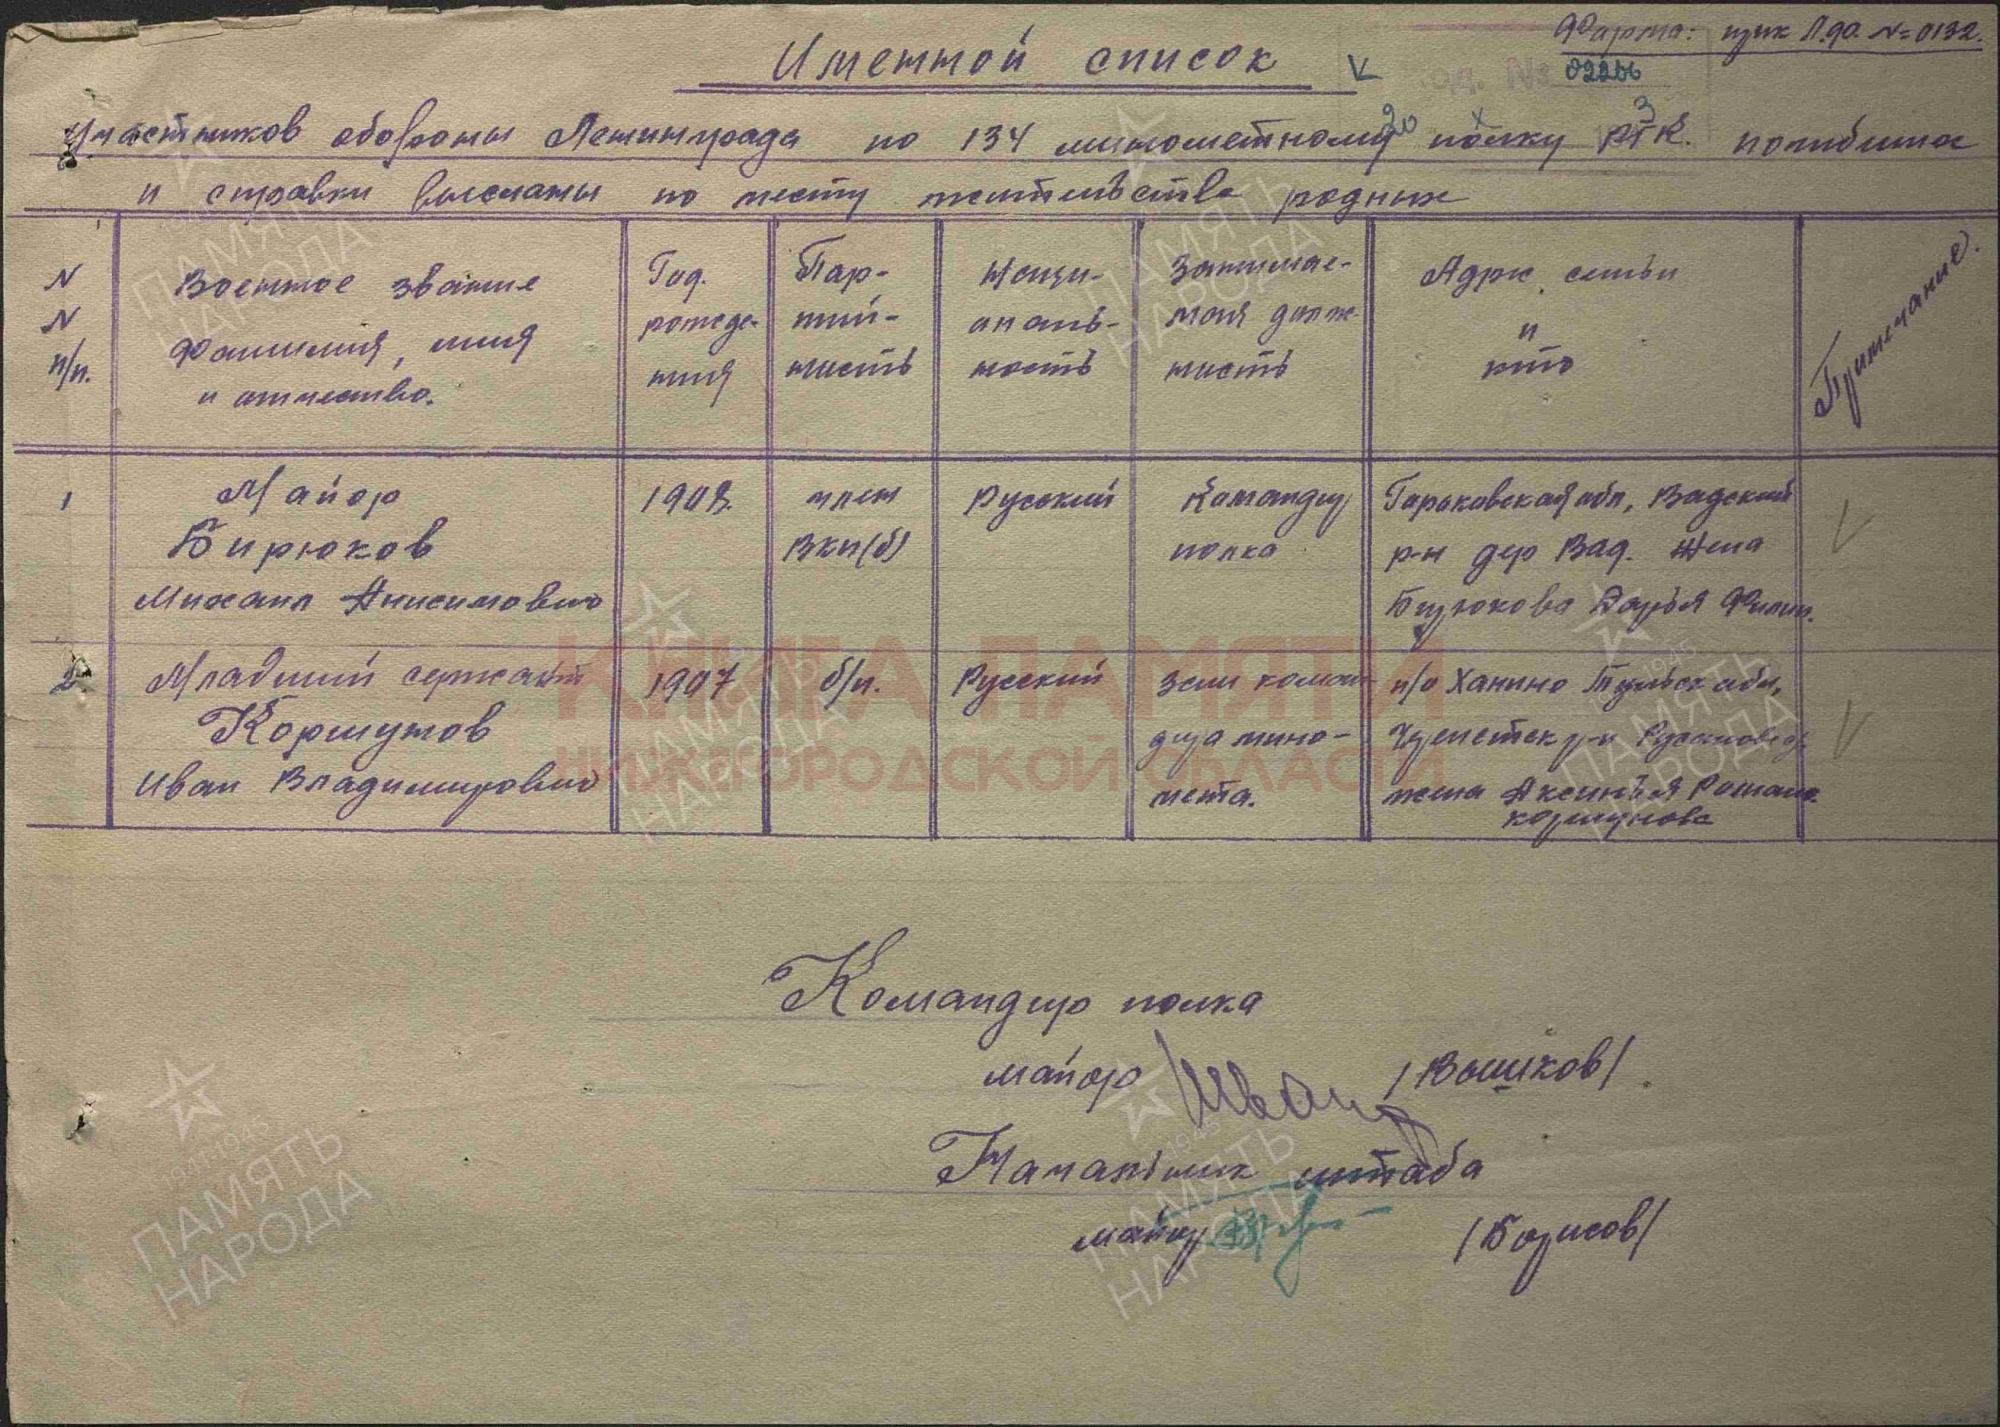 Форма: прик Л.ф. №0132.
02266
Именной список
Участников обороны Ленинграда по 134 минометному полку РГК. погибших
и справки высланы по месту жительства родных
N N п/п.
Военное звание
Фамилия, имя
и отчество.
Год.
рожде-
ния
Пар-
тий-
ность
Наци-
ональ-
ность
Занимае-
мая долж-
ность
Адрес семьи
и
кто
Примечание.
1
Майор
Бирюков
Михаил Анисимович
1908.
член
ВКП(б)
Русский
Командир
полка
Горьковская обл, Вадский
р-н дер Вад. Жена
Бирюкова Дарья Филип.
2
Младший сержант
Коршунов
Иван Владимирович
1907
б/п.
Русский
Зам коман-
дира мино-
мета.
п/о Ханино Тульск обл,
Черепетск р-н
жена Аксинья Роман.
Коршунова
Командир полка
майор /Вышков/
Начальник штаба
майор /Борисов/
КНИГА ПАМЯТИ
НИЖЕГОРОДСКОЙ ОБЛАСТИ
1941-1945
ПАМЯТЬ
НАРОДА